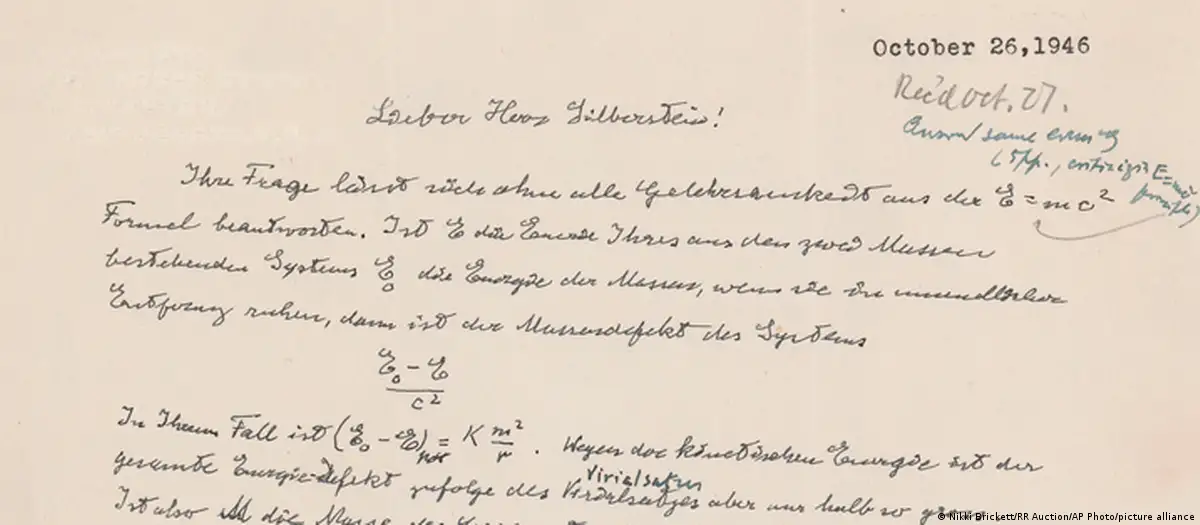 October 26, 1946
Rec'd Oct. 27.
Answ'd same evening
(5 pp., E=mc²
Lieber Herr Silberstein!
Ihre Frage lässt sich ohne alle Gelehrsamkeit aus der E = mc²
Formel beantworten. Ist E die Energie Ihres aus den zwei Massen
bestehenden Systems E₀ die Energie der Massen, wenn sie in unendlicher
Entfernung ruhen, dann ist der Massendefekt des Systems
E₀ − E
c²
In Ihrem Fall ist (E₀ − E) = K m²/r . Wegen der kinetischen Energie ist der
Virialsatzes
gesamte Energie-Defekt zufolge des Virialsatzes aber nur halb so gross
Ist also M die Masse der
© Nikki Brickett/RR Auction/AP Photo/picture alliance